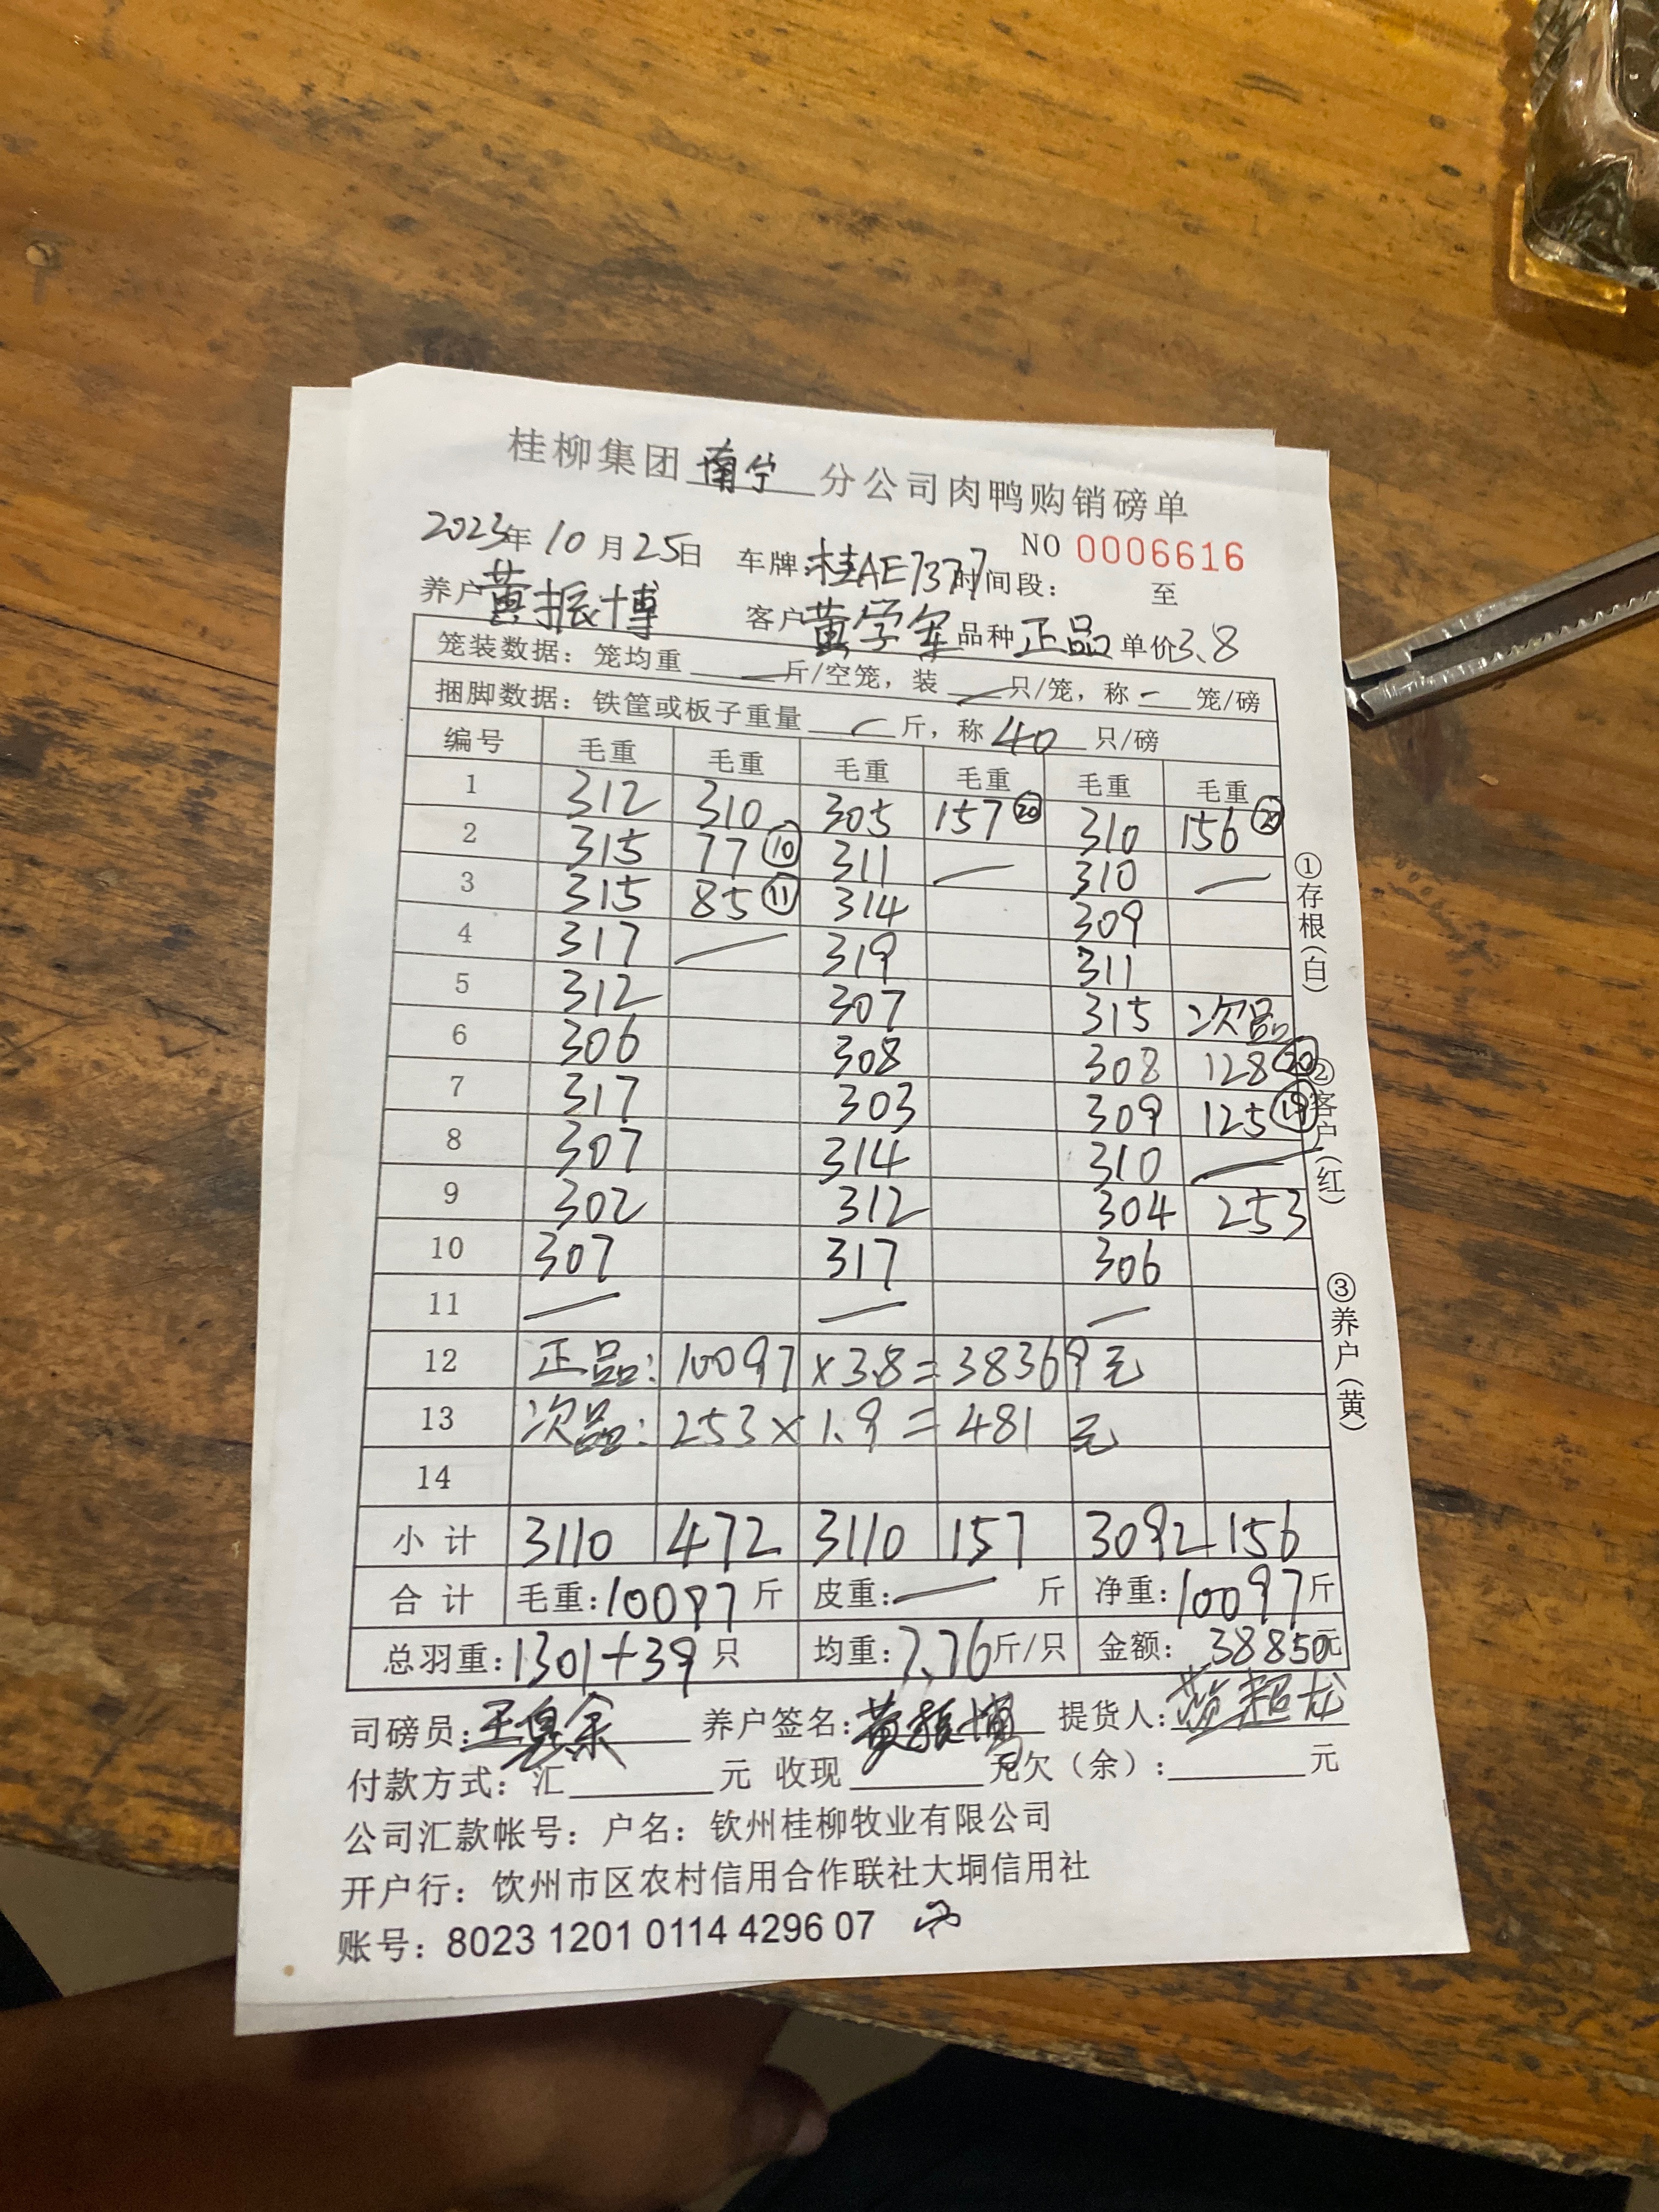 桂柳集团南宁分公司肉鸭购销磅单
NO 0006616
2023年10月25日 车牌:桂AE7377 时间段: 至
养户黄振博 客户黄学军 品种正品 单价3.8
笼装数据：笼均重 — 斤/空笼，装 — 只/笼，称 — 笼/磅
捆脚数据：铁筐或板子重量 — 斤，称 40 只/磅
编号 毛重 毛重 毛重 毛重 毛重 毛重
1 312 310 305 157 ⑳ 310 156 ⑳
2 315 77 ⑩ 311 — 310 —
3 315 85 ⑪ 314 309
4 317 — 319 311
5 312 307 315 次品
6 306 308 308 128 ⑳
7 317 303 309 125 ⑲
8 307 314 310 —
9 302 312 304 253
10 307 317 306
11 — — —
12 正品: 10097 × 3.8 = 38369 元
13 次品: 253 × 1.9 = 481 元
14
小计 3110 472 3110 157 3092 156
合计 毛重:10097斤 皮重:— 斤 净重:10097斤
总羽重:1301+39 只 均重:7.76斤/只 金额: 38850元
司磅员: 养户签名:黄振博 提货人:
付款方式：汇 元 收现 元 欠（余）: 元
公司汇款帐号：户名：钦州桂柳牧业有限公司
开户行：钦州市区农村信用合作联社大垌信用社
账号：8023 1201 0114 4296 07
①存根（白）
②客户（红）
③养户（黄）